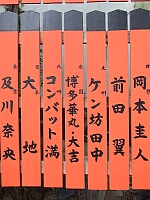 岡本圭人
前田翼
ケン坊田中
博多華丸・大吉
コンバット満
大地
及川奈央